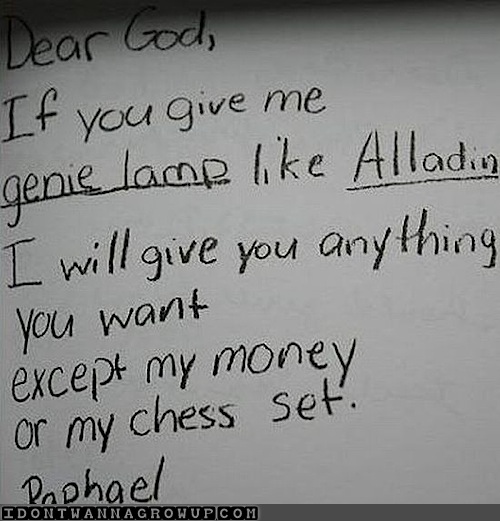 Dear God,
If you give me
genie lamp like Alladin
I will give you anything
you want
except my money
or my chess set.
Raphael
IDONTWANNAGROWUP.COM